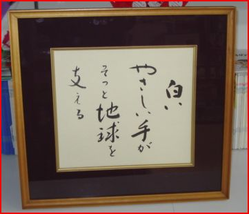 白い
やさしい手が
そっと地球を
支える